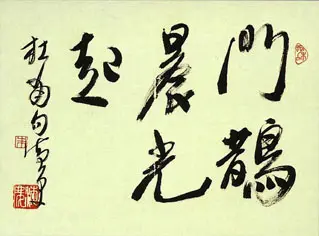 門鵲
晨光
起
杜甫句